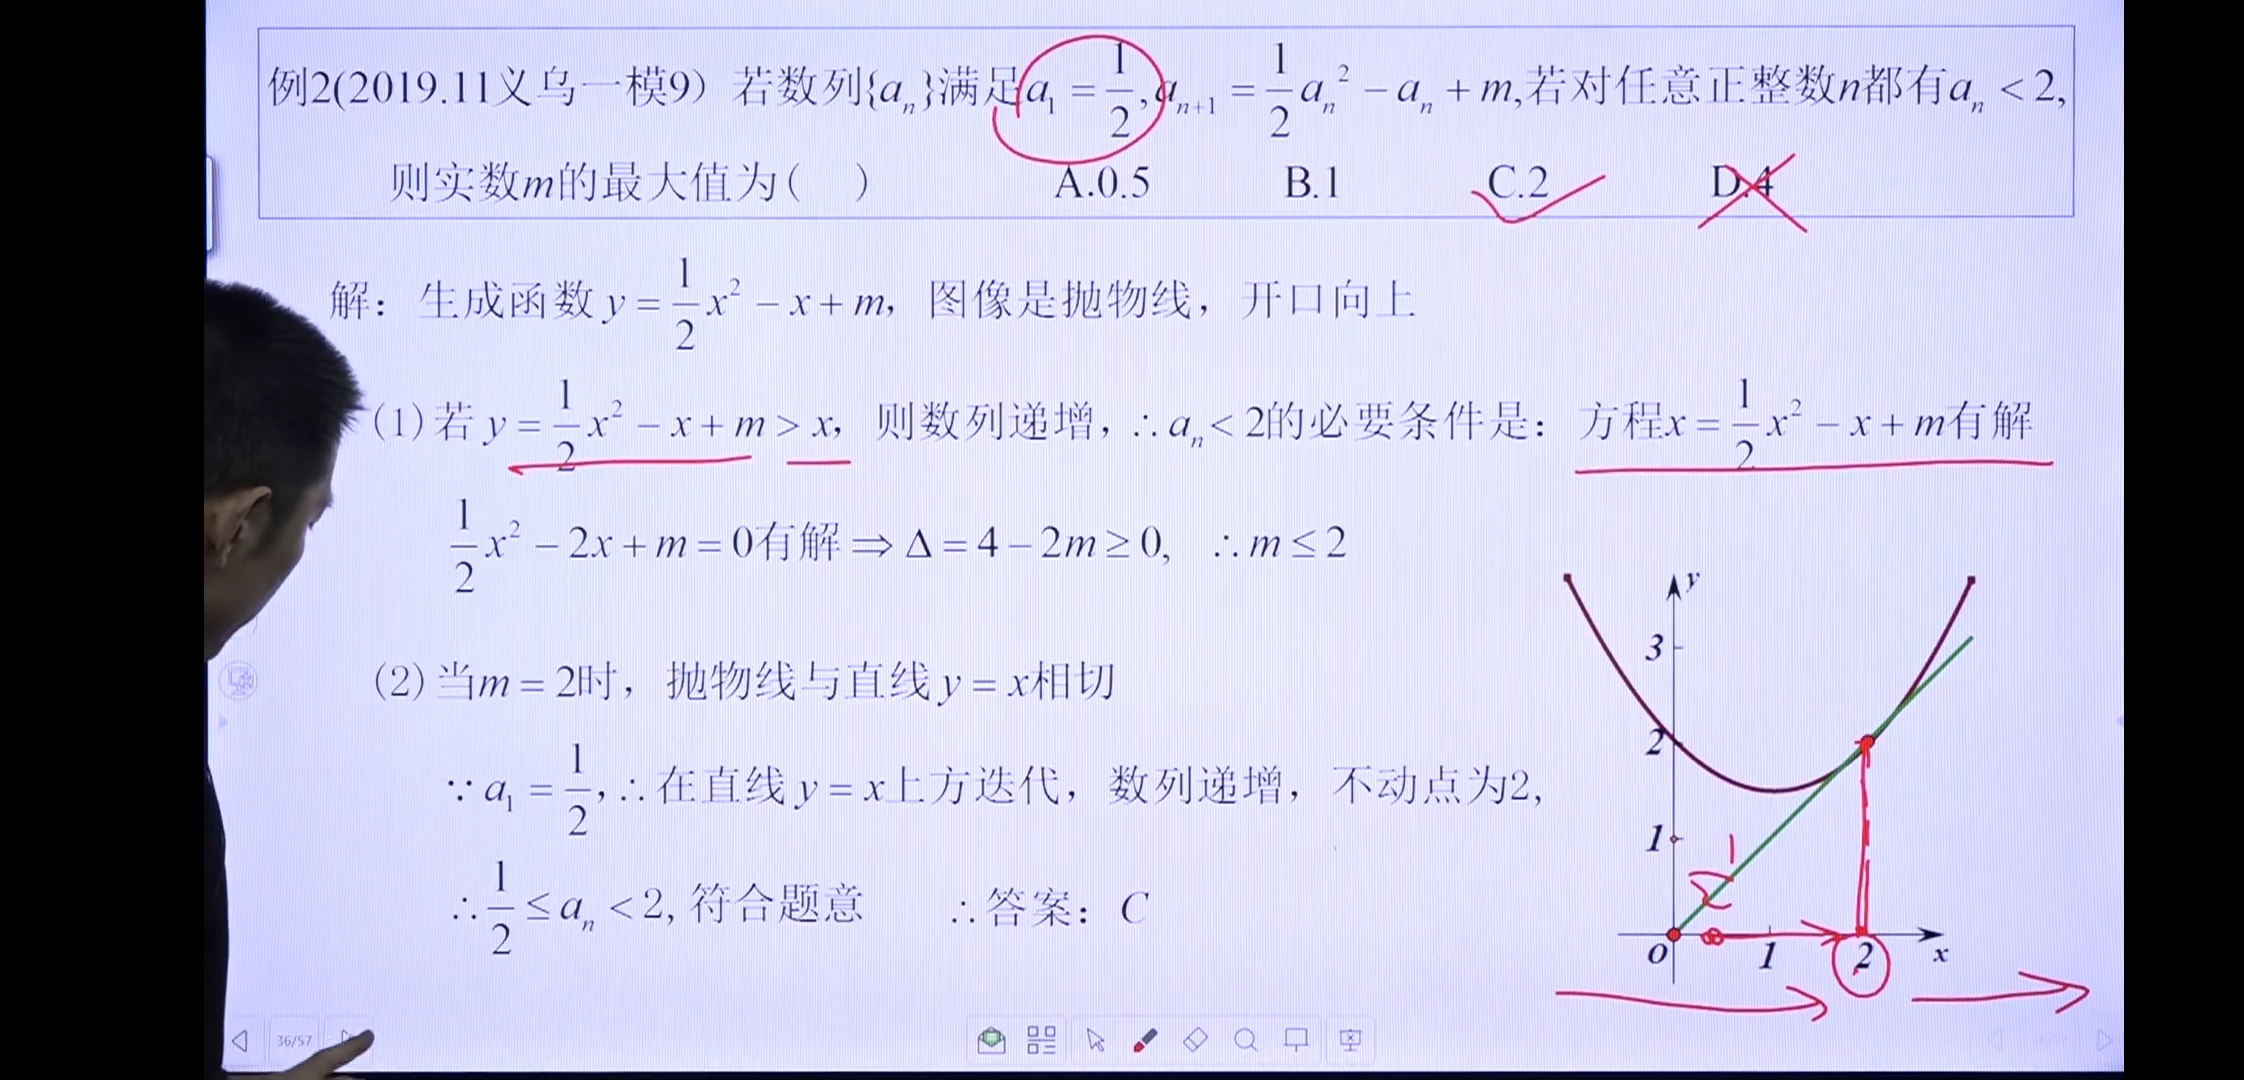 例2(2019.11义乌一模9) 若数列{aₙ}满足a₁ = 1/2, aₙ₊₁ = 1/2 aₙ² − aₙ + m,若对任意正整数n都有aₙ < 2,
则实数m的最大值为( ) A.0.5 B.1 C.2 D.4
解：生成函数 y = 1/2 x² − x + m，图像是抛物线，开口向上
(1)若 y = 1/2 x² − x + m > x，则数列递增，∴aₙ < 2的必要条件是：方程x = 1/2 x² − x + m有解
1/2 x² − 2x + m = 0有解 ⇒ Δ = 4 − 2m ≥ 0, ∴m ≤ 2
(2)当m = 2时，抛物线与直线 y = x相切
∵ a₁ = 1/2, ∴在直线 y = x上方迭代，数列递增，不动点为2,
∴ 1/2 ≤ aₙ < 2, 符合题意 ∴答案：C
y
3
2
1
1
2
o 1 2 x
36/57